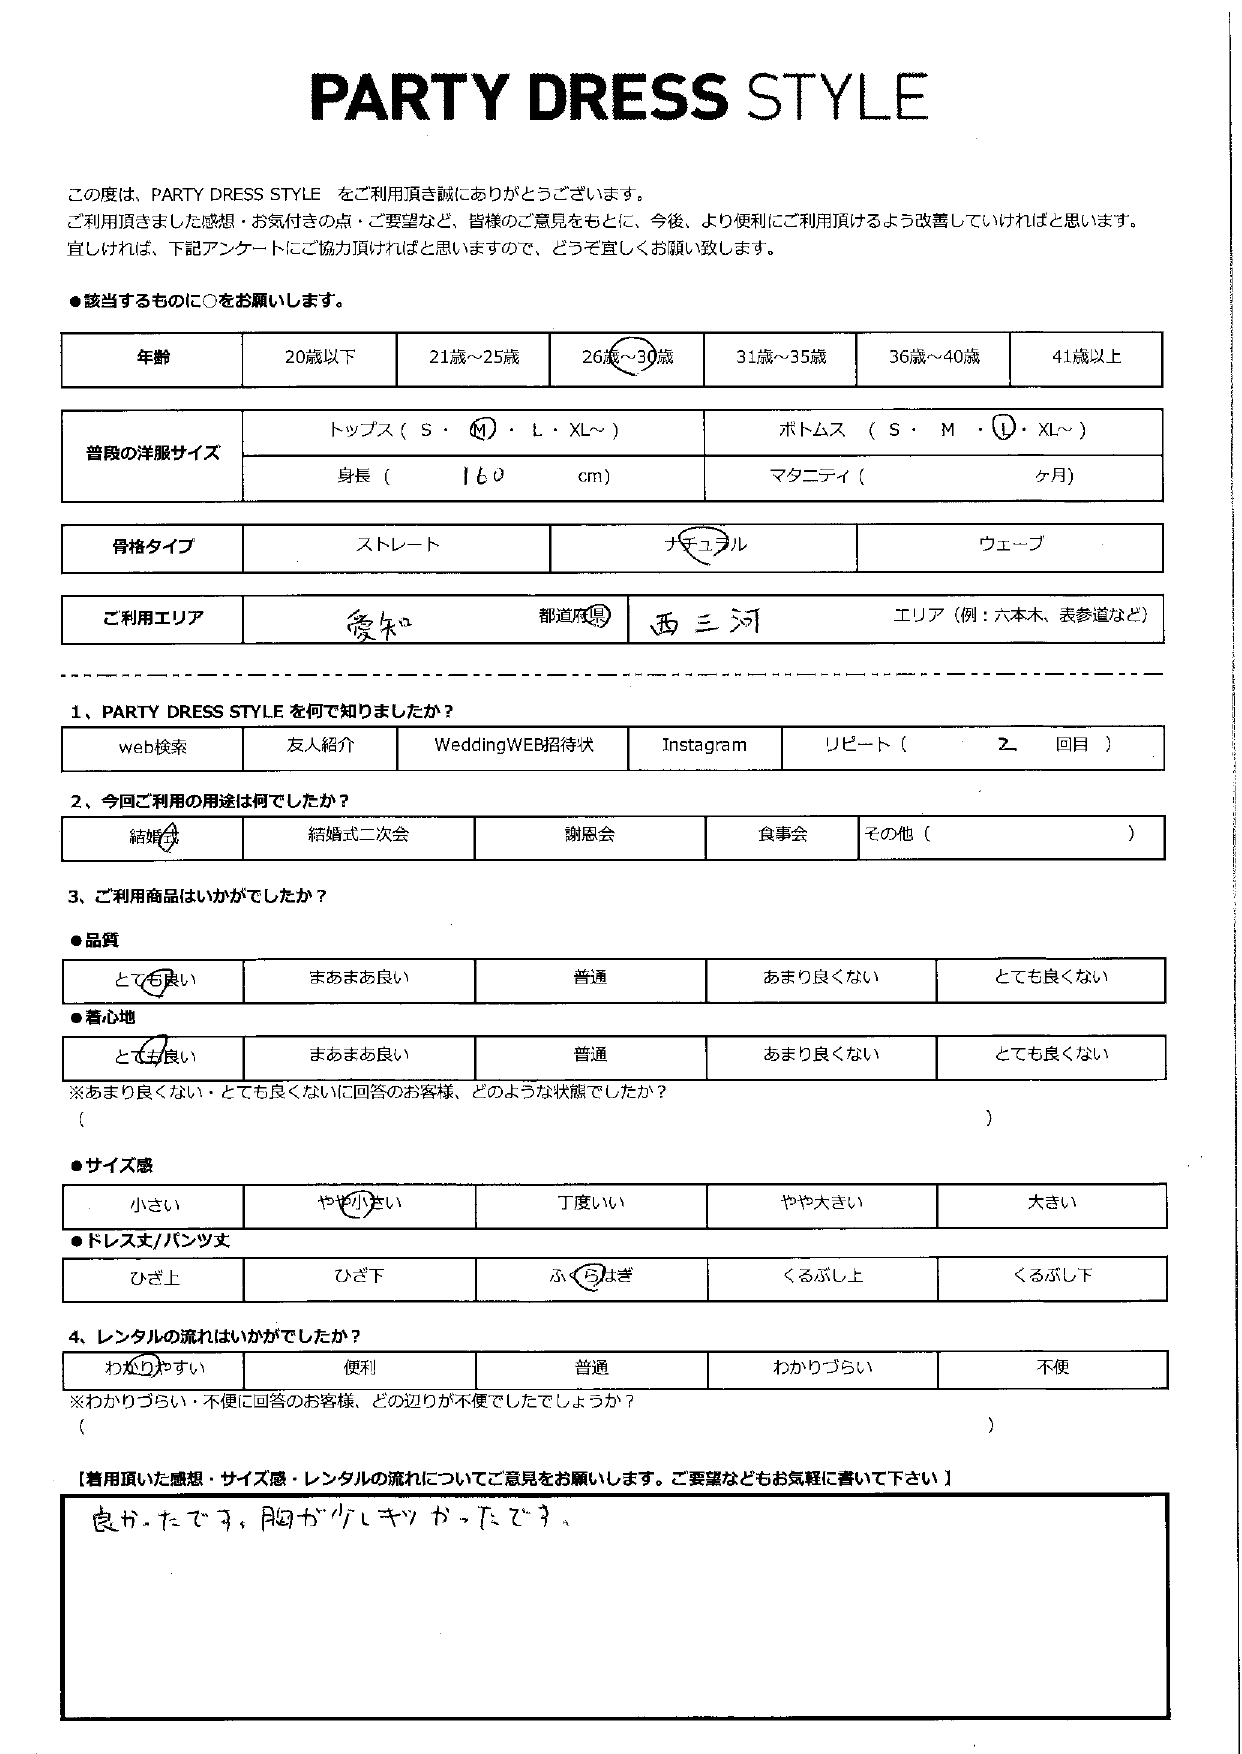 PARTY DRESS STYLE
この度は、PARTY DRESS STYLE をご利用頂き誠にありがとうございます。
ご利用頂きました感想・お気付きの点・ご要望など、皆様のご意見をもとに、今後、より便利にご利用頂けるよう改善していければと思います。
宜しければ、下記アンケートにご協力頂ければと思いますので、どうぞ宜しくお願い致します。
●該当するものに○をお願いします。
年齢 20歳以下 21歳～25歳 26歳～30歳 31歳～35歳 36歳～40歳 41歳以上
普段の洋服サイズ トップス ( S ・ M ・ L ・ XL～ ) ボトムス ( S ・ M ・ L ・ XL～ )
身長 ( 160 cm) マタニティ ( ヶ月)
骨格タイプ ストレート ナチュラル ウェーブ
ご利用エリア 愛知 都道府県 西三河 エリア（例：六本木、表参道など）
1、PARTY DRESS STYLE を何で知りましたか？
web検索 友人紹介 WeddingWEB招待状 Instagram リピート ( 2 回目 )
2、今回ご利用の用途は何でしたか？
結婚式 結婚式二次会 謝恩会 食事会 その他 ( )
3、ご利用商品はいかがでしたか？
●品質
とても良い まあまあ良い 普通 あまり良くない とても良くない
●着心地
とても良い まあまあ良い 普通 あまり良くない とても良くない
※あまり良くない・とても良くないに回答のお客様、どのような状態でしたか？
( )
●サイズ感
小さい やや小さい 丁度いい やや大きい 大きい
●ドレス丈/パンツ丈
ひざ上 ひざ下 ふくらはぎ くるぶし上 くるぶし下
4、レンタルの流れはいかがでしたか？
わかりやすい 便利 普通 わかりづらい 不便
※わかりづらい・不便に回答のお客様、どの辺りが不便でしたでしょうか？
( )
【着用頂いた感想・サイズ感・レンタルの流れについてご意見をお願いします。ご要望などもお気軽に書いて下さい 】
良かったです。胸が少しキツかったです。